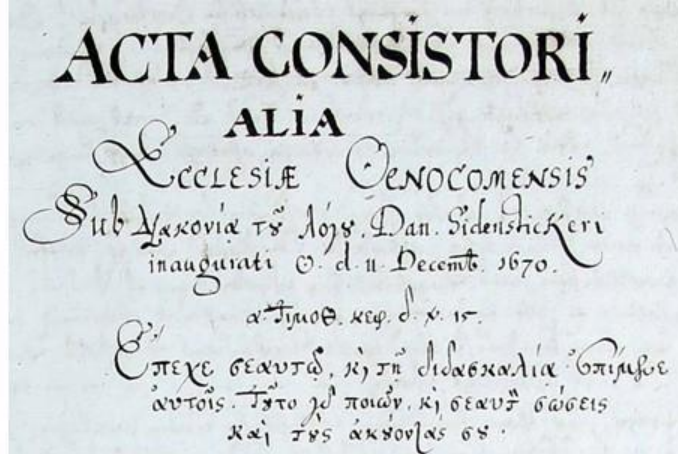 ACTA CONSISTORI„
ALIA
ECCLESIÆ OENOCOMENSIS
Sub διακονία τȣ͂ λόγȣ. Dan. Sidenstickeri
inaugurati ☉. d. 11. Decemb. 1670.
α Τιμοθ. κεφ. δ. v. 15
Ἔπεχε σεαυτῶ, κὶ τῆ διδασκαλία ἐπίμενε
ἀυτοῖς. Τȣ͂το γδ ποιῶν, κὶ σεαυτ σώσεις
καὶ τȣ̀ς ἀκȣ́ονλας σȣ.